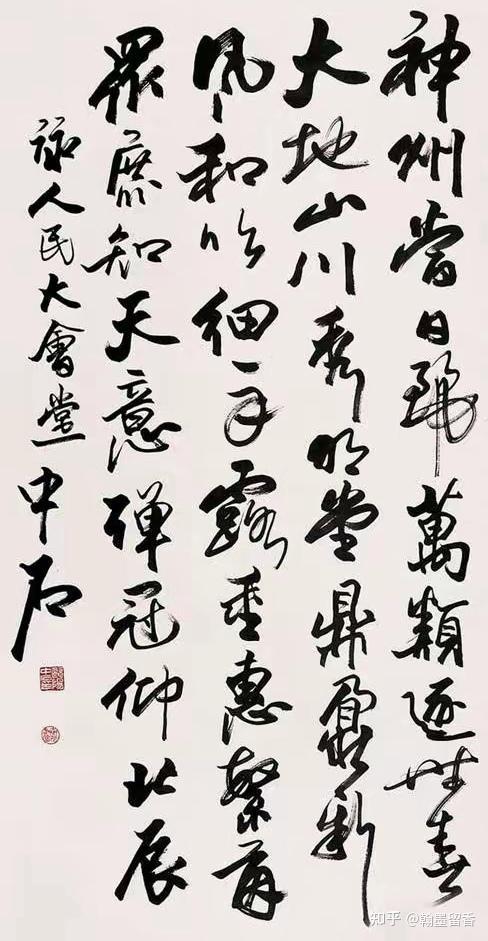 神州當日麗萬類逐春
大地山川秀明堂鼎鼐新
風和吹細露垂惠繁
眾庶知天意彈冠仰北辰
詠人民大會堂 中石
知乎 @翰墨留香